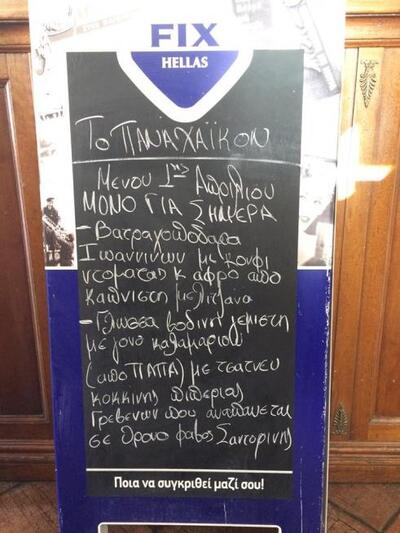 FIX
HELLAS
ΤΟ ΠΑΝΑΧΑΪΚΟΝ
Μενου 1ης Απριλιου
ΜΟΝΟ ΓΙΑ ΣΗΜΕΡΑ
- Βατραχοποδαρα
Ιωαννινων με κονφι
ντοματας κ αφρο απο
καπνιστη μελιτζανα
- Γλωσσα βοδινη γεμιστη
με γονο καλαμαριου
(απο ΠΑΠΑ) με τσατνευ
κοκκινης πιπεριας
Γρεβενων που αναπαυεται
σε θρονο φαβας Σαντορινης
Ποια να συγκριθεί μαζί σου!